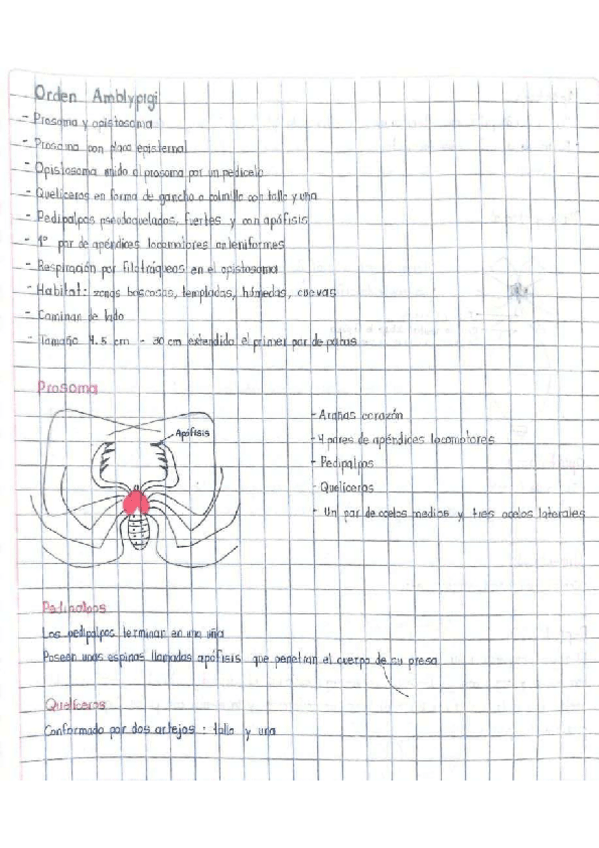 Orden Amblypigi
- Prosoma y opistosoma
- Prosoma con placa episternal
- Opistosoma unido al prosoma por un pedicelo
- Quelíceros en forma de gancho o colmillo con tallo y uña
- Pedipalpos pseudoquelados, fuertes y con apófisis
- 1° par de apéndices locomotores anteniformes
- Respiración por filotráqueas en el opistosoma
- Habitat: zonas boscosas, templadas, húmedas, cuevas
- Caminan de lado
- Tamaño 4.5 cm - 30 cm extendido el primer par de patas
Prosoma
Apófisis
- Arañas corazón
- 4 pares de apéndices locomotores
- Pedipalpos
- Quelíceros
- Un par de ocelos medios y tres ocelos laterales
Pedipalpos
Los pedipalpos terminan en una uña
Poseen unas espinas llamadas apófisis que penetran el cuerpo de su presa
Quelíceros
Conformado por dos artejos : tallo y uña